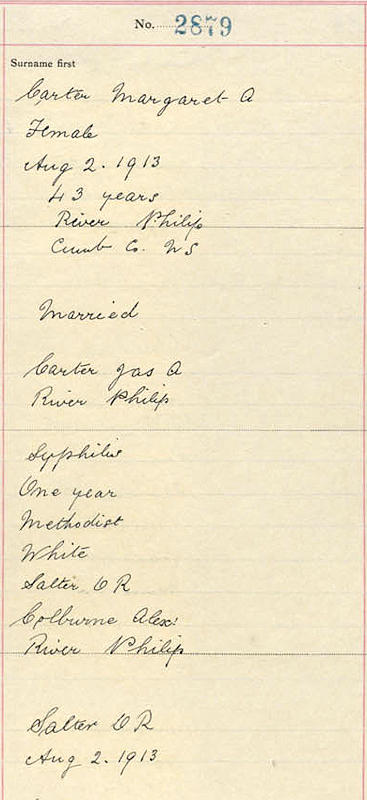 No. 2879
Surname first
Carter Margaret A
Female
Aug 2. 1913
43 years
River Philip
Cumb Co. NS
Married
Carter Jas A
River Philip
Syphilis
One year
Methodist
White
Salter D R
Colburne Alex:
River Philip
Salter D R
Aug 2. 1913